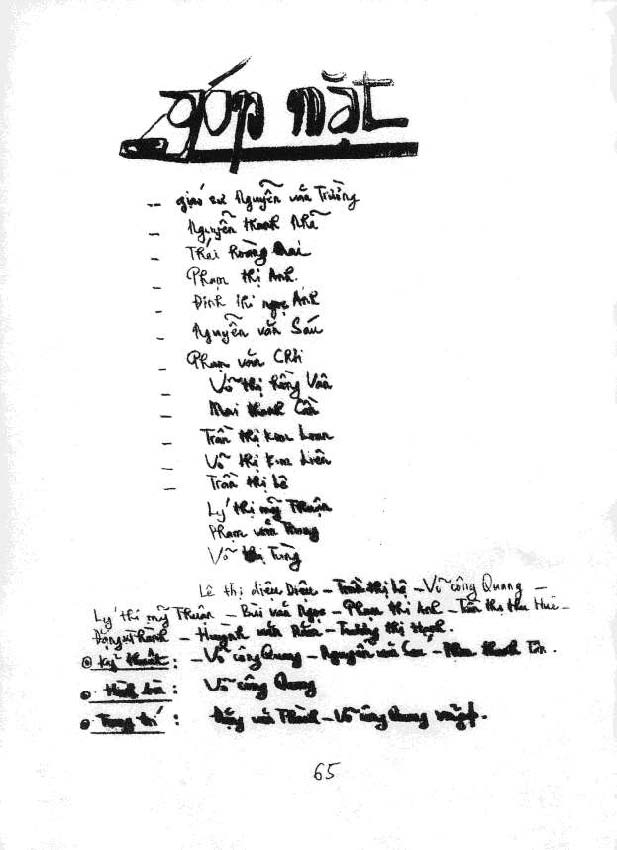 góp mặt
- giáo sư Nguyễn văn Trường
- Nguyễn thanh Nhã
- Thái hoàng Mai
- Phạm thị Anh.
- Đinh thị ngọc Ánh
- Nguyễn văn Sáu
- Phạm văn Chi
- Võ thị hồng Vân
- Mai thanh
- Trần thị kim Loan
- Võ thị kim Liên
- Trần thị Lê
Lý thị mỹ Thuận
Phạm văn Trung
Võ thị Tường
Lê thị diệu Diệu - Trần thị Lệ - Võ công Quang -
Lý thị mỹ Thuận - Bùi văn Ngọc - Phạm thị Anh - Trần thị thu Huê -
Đặng v Thành - Huỳnh văn Năm - Trương thị Hạnh.
kỹ thuật : - Võ công Quang - Nguyễn văn - Phan thanh
Hình bìa : Võ công Quang
Trang trí : Đặng văn Thành - Võ công Quang
65